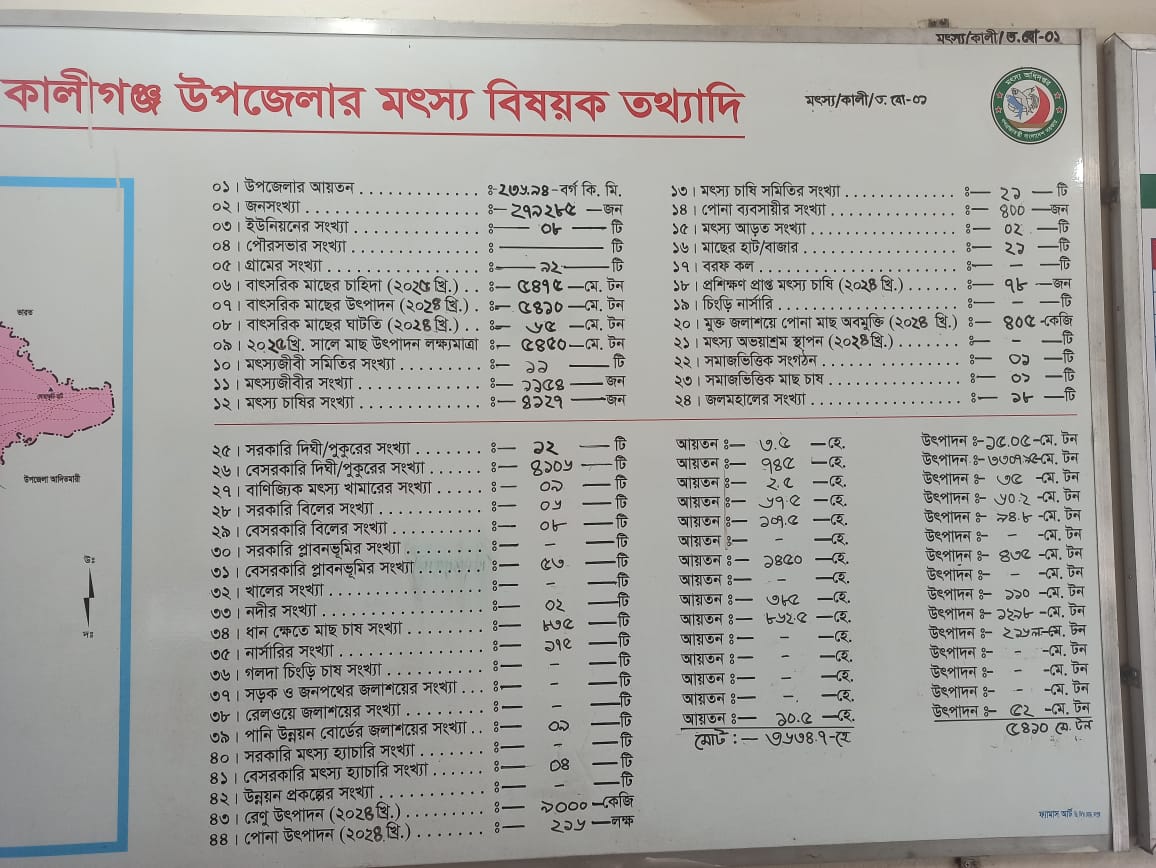 মৎস্য/কালী/ত.বো-০১
কালীগঞ্জ উপজেলার মৎস্য বিষয়ক তথ্যাদি
মৎস্য/কালী/ত.বো-০১
০১। উপজেলার আয়তন . . . . . . . . . . . . ঃ-২৩৬.৯৪-বর্গ কি. মি.
০২। জনসংখ্যা . . . . . . . . . . . . ঃ— ২৭৯২৮৫ —জন
০৩। ইউনিয়নের সংখ্যা . . . . . . . . . . . . ঃ— ০৮ — টি
০৪। পৌরসভার সংখ্যা . . . . . . . . . . . . ঃ ——— টি
০৫। গ্রামের সংখ্যা . . . . . . . . . . . . ঃ— ৯২ — টি
০৬। বাৎসরিক মাছের চাহিদা (২০২৫ খ্রি.) . . ঃ— ৫৪৭৫ —মে. টন
০৭। বাৎসরিক মাছের উৎপাদন (২০২৪ খ্রি.) . ঃ— ৫৪১০ —মে. টন
০৮। বাৎসরিক মাছের ঘাটতি (২০২৪ খ্রি.) . . ঃ— ৬৫ —মে. টন
০৯। ২০২৫খ্রি. সালে মাছ উৎপাদন লক্ষ্যমাত্রা ঃ— ৫৪৫০—মে. টন
১০। মৎস্যজীবী সমিতির সংখ্যা . . . . . . ঃ— ১১ — টি
১১। মৎস্যজীবীর সংখ্যা . . . . . . . . . . ঃ— ১১৫৪ — জন
১২। মৎস্য চাষির সংখ্যা . . . . . . . . . . ঃ— ৪১২৭ —জন
১৩। মৎস্য চাষি সমিতির সংখ্যা . . . . . . . . . . ঃ— ২১ —টি
১৪। পোনা ব্যবসায়ীর সংখ্যা . . . . . . . . . . ঃ— ৪০০ —জন
১৫। মৎস্য আড়ত সংখ্যা . . . . . . . . . . ঃ— ০২ —টি
১৬। মাছের হাট/বাজার . . . . . . . . . . ঃ— ২১ —টি
১৭। বরফ কল . . . . . . . . . . ঃ— - —টি
১৮। প্রশিক্ষণ প্রাপ্ত মৎস্য চাষি (২০২৪ খ্রি.) . . . . . . ঃ— ৭৮ —জন
১৯। চিংড়ি নার্সারি . . . . . . . . . . ঃ— - —টি
২০। মুক্ত জলাশয়ে পোনা মাছ অবমুক্তি (২০২৪ খ্রি.) ঃ— ৪০৫ -কেজি
২১। মৎস্য অভয়াশ্রম স্থাপন (২০২৪খ্রি.) . . . . . . ঃ— - —টি
২২। সমাজভিত্তিক সংগঠন . . . . . . . . . . ঃ— ০১ —টি
২৩। সমাজভিত্তিক মাছ চাষ . . . . . . . . . . ঃ— ০১ —টি
২৪। জলমহালের সংখ্যা . . . . . . . . . . ঃ— ১৮ —টি
২৫। সরকারি দিঘী/পুকুরের সংখ্যা . . . . . . ঃ— ১২ — টি আয়তন ঃ— ৩.৫ —হে. উৎপাদন ঃ-১৫.০৫-মে. টন
২৬। বেসরকারি দিঘী/পুকুরের সংখ্যা . . . . . ঃ— ৪১০৬ —টি আয়তন ঃ— ৭৪৫ —হে. উৎপাদন ঃ-মে. টন
২৭। বাণিজ্যিক মৎস্য খামারের সংখ্যা . . . . . ঃ— ০১ —টি আয়তন ঃ— ২.৫ —হে. উৎপাদন ঃ- ৩৫ -মে. টন
২৮। সরকারি বিলের সংখ্যা . . . . . . . . ঃ— ০৬ —টি আয়তন ঃ— ৬৭.৫ —হে. উৎপাদন ঃ- ৬০.২ -মে. টন
২৯। বেসরকারি বিলের সংখ্যা . . . . . . . . ঃ— ০৮ —টি আয়তন ঃ— ১০৭.৫ —হে. উৎপাদন ঃ- ৯৪.৮ -মে. টন
৩০। সরকারি প্লাবনভূমির সংখ্যা ঃ— - —টি আয়তন ঃ— - —হে. উৎপাদন ঃ- - -মে. টন
৩১। বেসরকারি প্লাবনভূমির সংখ্যা ঃ— ৫৩ —টি আয়তন ঃ— ১৪৫০ —হে. উৎপাদন ঃ- ৪৩৫ -মে. টন
৩২। খালের সংখ্যা . . . . . . . . . . ঃ— - —টি আয়তন ঃ— - —হে. উৎপাদন ঃ- - -মে. টন
৩৩। নদীর সংখ্যা . . . . . . . . . . ঃ— ০২ —টি আয়তন ঃ— ৩৮৫ —হে. উৎপাদন ঃ- ১১০ -মে. টন
৩৪। ধান ক্ষেতে মাছ চাষ সংখ্যা . . . . . . . . ঃ— ৮৩৫ —টি আয়তন ঃ— ৮৬২.৫ —হে. উৎপাদন ঃ- -মে. টন
৩৫। নার্সারির সংখ্যা . . . . . . . . . . ঃ— ১৭৫ —টি আয়তন ঃ— - —হে. উৎপাদন ঃ- -মে. টন
৩৬। গলদা চিংড়ি চাষ সংখ্যা . . . . . . . . ঃ— - —টি আয়তন ঃ— - —হে. উৎপাদন ঃ- - -মে. টন
৩৭। সড়ক ও জনপথের জলাশয়ের সংখ্যা . . . ঃ— - —টি আয়তন ঃ— - —হে. উৎপাদন ঃ- - -মে. টন
৩৮। রেলওয়ে জলাশয়ের সংখ্যা . . . . . . . . ঃ— - —টি আয়তন ঃ— - —হে. উৎপাদন ঃ- - -মে. টন
৩৯। পানি উন্নয়ন বোর্ডের জলাশয়ের সংখ্যা . . ঃ— ০১ —টি আয়তন ঃ— ১০.৫ —হে. উৎপাদন ঃ- ৫২ -মে. টন
৪০। সরকারি মৎস্য হ্যাচারি সংখ্যা . . . . . . ঃ— - —টি মোট :— ৩৬৩৪.৭-হে ৫৪১০ মে. টন
৪১। বেসরকারি মৎস্য হ্যাচারি সংখ্যা . . . . . ঃ— ০৪ —টি
৪২। উন্নয়ন প্রকল্পের সংখ্যা . . . . . . . . ঃ— - —টি
৪৩। রেণু উৎপাদন (২০২৪খ্রি.) . . . . . . ঃ— ১০০০ —কেজি
৪৪। পোনা উৎপাদন (২০২৪খ্রি.) . . . . . . ঃ— ২১৬ —লক্ষ
ভারত
উপজেলা আদিতমারী
উঃ
দঃ
ফ্যামাস আর্ট